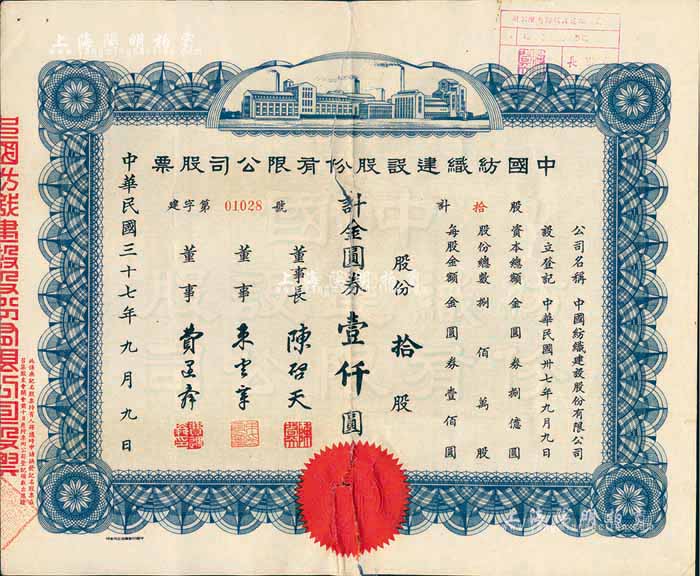 中國紡織建設股份有限公司股票
公司名稱 中國紡織建設股份有限公司
設立登記 中華民國卅七年九月九日
資本總額金圓券捌億圓
股份總數捌佰萬股
每股金額金圓券壹佰圓
計 拾 股
股份 拾 股
計金圓券壹仟圓
董事長 陳啓天
董事
董事
建字第 01028 號
中華民國三十七年九月九日
上海陽明拍賣
上海陽明拍賣
上海陽明拍賣
上海陽明拍賣